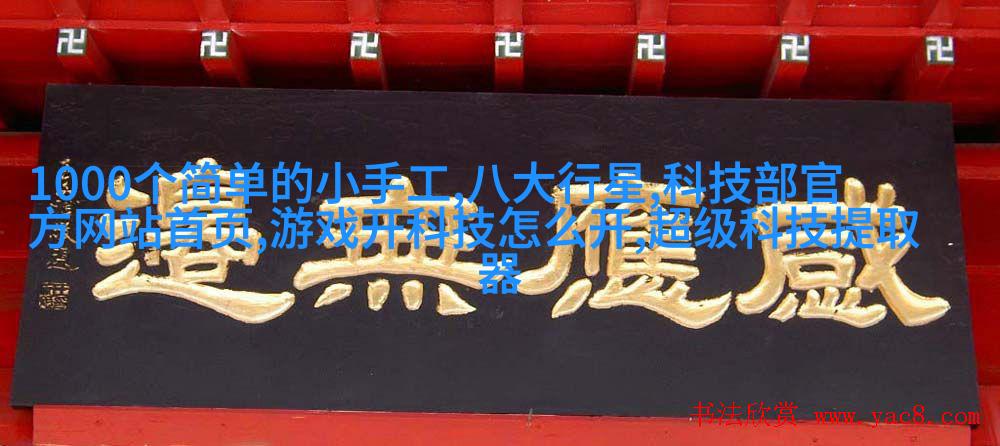 卍 卍 卍 卍 卍 卍 卍
1000个简单的小手工,八大行星,科技部官
方网站首页,游戏开科技怎么开,超级科技提取
器
感應無邊
书法欣赏 www.yac8.com